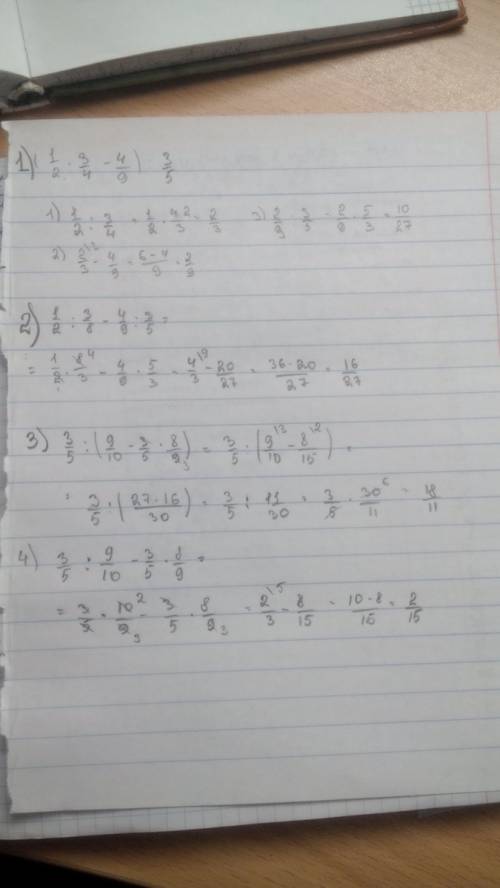 1) (1/2 : 3/4 - 4/9) : 3/5
1) 1/2 : 3/4 = 1/2 · 4²/3 = 2/3   3) 2/9 : 3/5 = 2/9 · 5/3 = 10/27
2) 2/3 - 4/9 = 6-4/9 = 2/9
2) 1/2 : 3/8 - 4/9 : 3/5 =
= 1/2 · 8⁴/3 - 4/9 · 5/3 = 4/3 - 20/27 = 36-20/27 = 16/27
3) 3/5 : (9/10 - 3/5 · 8/9₃) = 3/5 : (9/10 - 8/15) =
= 3/5 : (27-16/30) = 3/5 : 11/30 = 3/5 · 30⁶/11 = 18/11
4) 3/5 : 9/10 - 3/5 · 8/9 =
= 3/5 · 10²/9₃ - 3/5 · 8/9₃ = 2/3 - 8/15 = 10-8/15 = 2/15